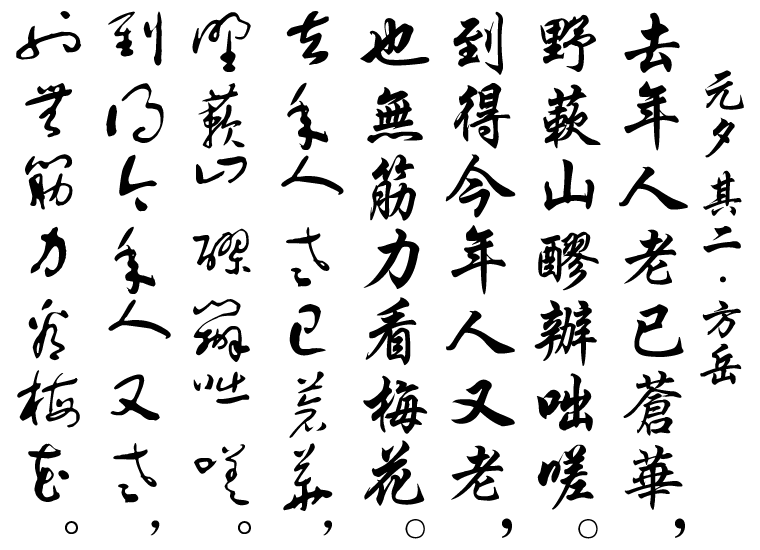 元夕其二·方岳
去年人老已蒼華，
野蔌山醪辦咄嗟。
到得今年人又老，
也無筋力看梅花。
去年人老已蒼華，
野蔌山醪辦咄嗟。
到得今年人又老，
也無筋力看梅花。